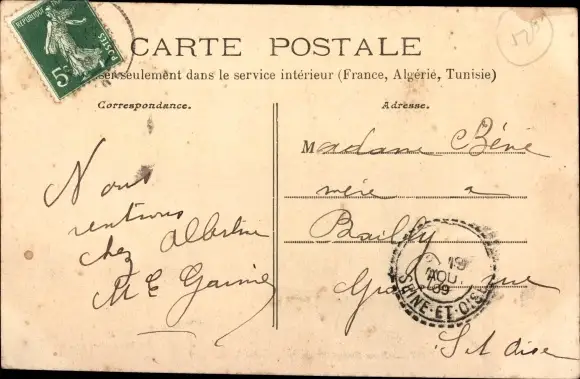 RÉPUBLIQUE
POSTES
5
CARTE POSTALE
seulement dans le service intérieur (France, Algérie, Tunisie)
Correspondance.
Adresse.
Nous
rentrons
chez Albertine
Madame Béné
mère a
Bailly
Gr rue
S et Oise
19
AOU
09
SEINE-ET-OISE